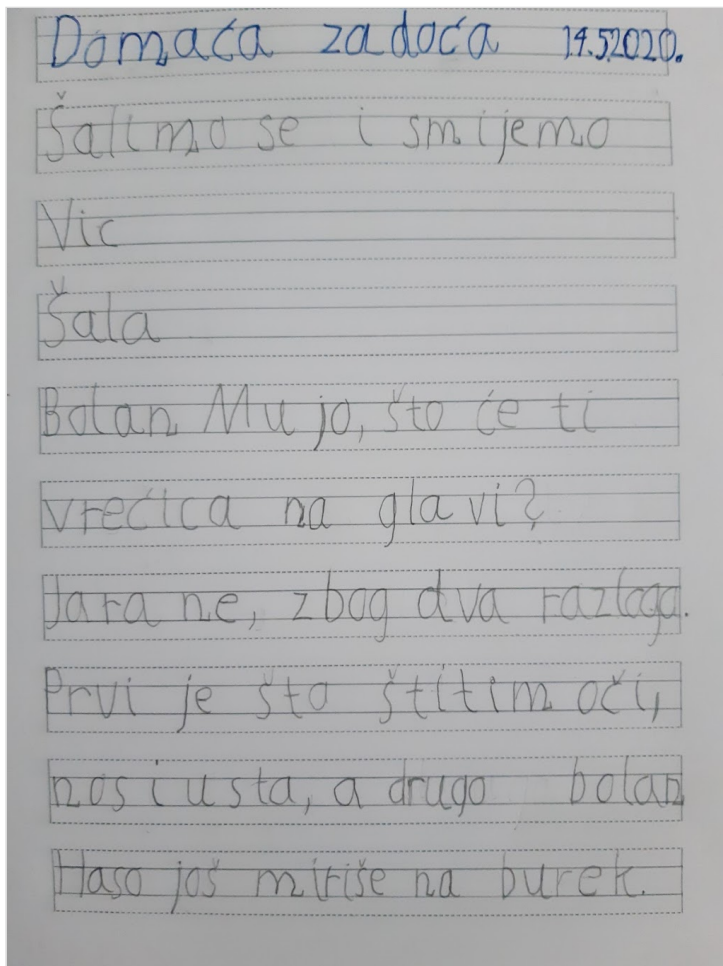 Domaća zadaća 14.5.2020.
Šalimo se i smijemo
Vic
Šala
Bolan Mujo, što će ti
vrećica na glavi?
Jarane, zbog dva razloga.
Prvi je što štitim oči,
nos i usta, a drugo bolan
Haso još miriše na burek.